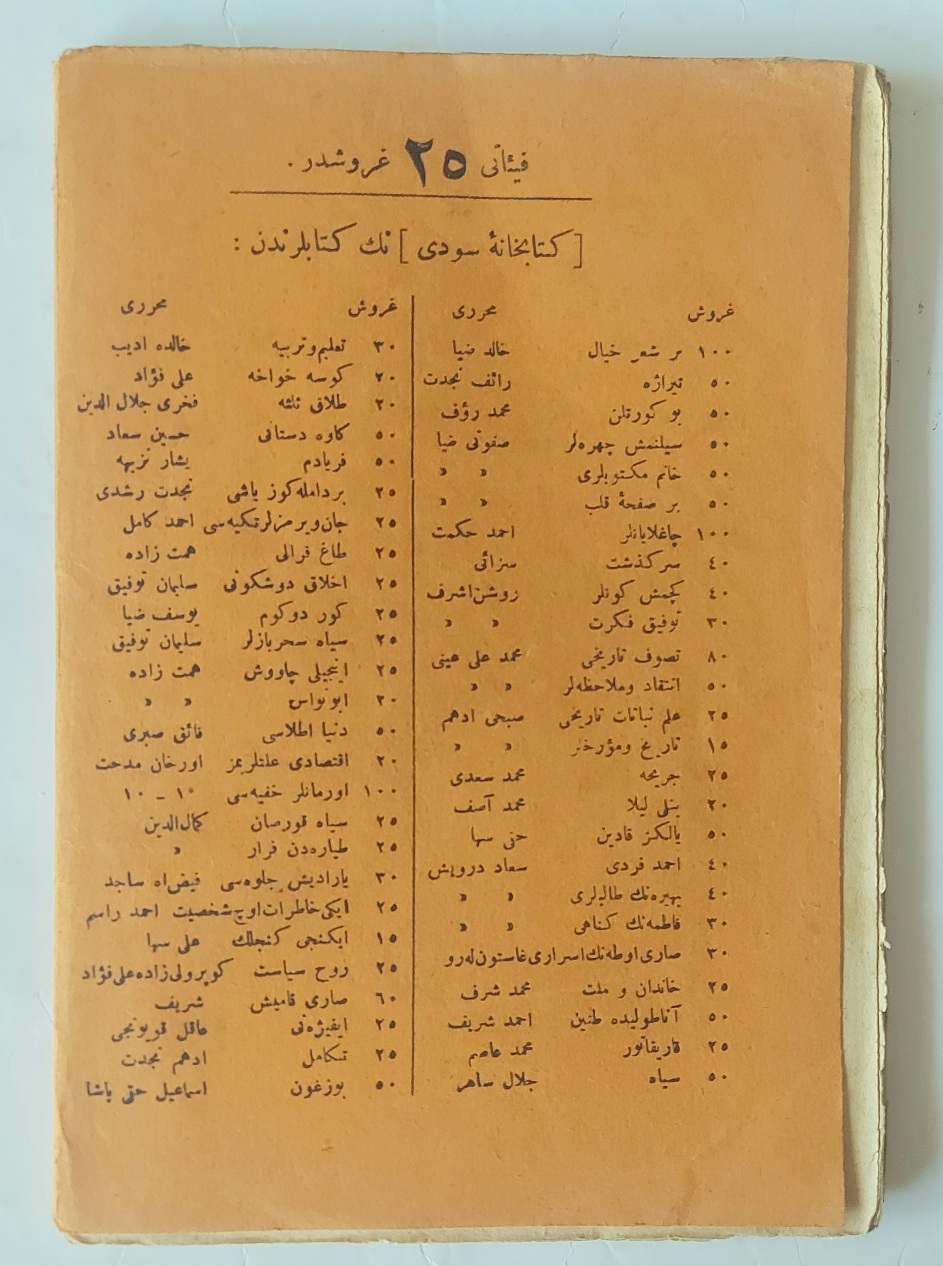 فیئاتی ٢٥ غروشدر .
[ كتابخانۀ سودی ] نك كتابلرندن :
غروش محرری
١٠٠ بر شعر خیال خالد ضیا
٥٠ تیراژه رائف نجدت
٥٠ بو كورتلن محمد رؤف
٥٠ سیلنمش چهره‌لر صفوتی ضیا
٥٠ خانم مكتوبلری » »
٥٠ بر صفحۀ قلب » »
١٠٠ چاغلایانلر احمد حكمت
٤٠ سركذشت سزائی
٤٠ كچمش كونلر روشن اشرف
٣٠ توفیق فكرت » »
٨٠ تصوف تاریخی محمد علی عینی
٥٠ انتقاد وملاحظه‌لر » »
٢٥ علم نباتات تاریخی صبحی ادهم
١٥ تاریخ ومؤرخلر » »
٢٥ جریحه محمد سعدی
٢٠ لیلا محمد آصف
٥٠ یالكز قادین حقی سها
٤٠ احمد فردی سعاد درویش
٤٠ بهیره‌نك طالبلری » »
٣٠ فاطمه‌نك كناهی » »
٣٠ صاری اوطه‌نك اسراری غاستون له‌رو
٢٥ خاندان و ملت محمد شرف
٥٠ آناطولیده طنین احمد شریف
٢٥ قاریقاتور محمد عاصم
٥٠ سیاه جلال ساهر
غروش محرری
٣٠ تعلیم وتربیه خالده ادیب
٢٠ كوسه خواخه علی فؤاد
٢٠ طلاق ثلثه فخری جلال الدین
٥٠ كاوه دستانی حسین سعاد
٥٠ فریادم یشار نزیهه
٢٥ بر دامله كوز یاشی نجدت رشدی
٢٥ جان ویرمزلر تكیه‌سی احمد كامل
٢٥ طاغ قرالی همت زاده
٢٥ اخلاق دوشكونی سلیمان توفیق
٢٥ كور دوكوم یوسف ضیا
٢٥ سیاه سحربازلر سلیمان توفیق
٢٥ اینجیلی چاووش همت زاده
٢٠ ابو نواس » »
٥٠ دنیا اطلاسی فائق صبری
٢٠ اقتصادی علتلریمز اورخان مدحت
١٠٠ اورمانلر خفیه‌سی ١٠ - ١٠
٢٥ سیاه قورصان كمال الدین
٢٥ طیاره‌دن فرار »
٣٠ یارادیش جلوه‌سی فیض اﷲ ساجد
٢٥ ایكی خاطرات اوچ شخصیت احمد راسم
١٥ ایكنجی كنجلك علی سها
٢٥ روح سیاست كوپرولی زاده علی فؤاد
٦٠ صاری قامیش شریف
٢٥ ایفیژه‌نی عاقل قویونجی
٢٥ تكامل ادهم نجدت
٥٠ بوزغون اسماعیل حقی پاشا